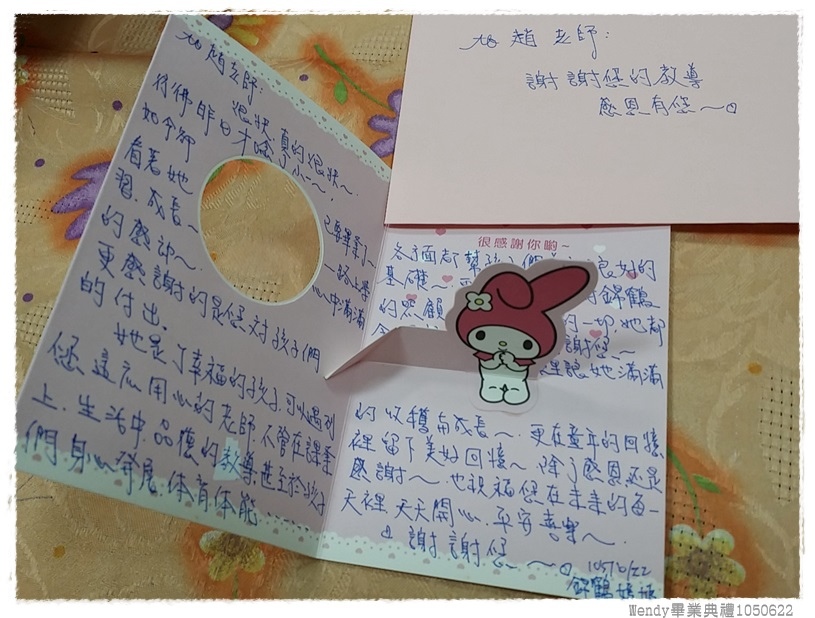 To 趙老師:
謝謝您的教導
感恩有您~
To 趙老師:
很快,真的很快~
彷彿昨日才唸小一~,
如今卻 已要畢業了~
看著她 一路上學
習、成長~ 心中滿滿
的感動~
更感謝的是您對孩子們
的付出,
她是個幸福的孩子,可以遇到
您這麼用心的老師,不管在課業
上、生活中、品德的教導,甚至於孩子
們身心發展、體育體能......
很感謝你喲~
各方面都幫孩子們 良好的
基礎~ 對錦鶴
的照顧
的一切,她都
謝您~
裡讓她滿滿
的收穫與成長~,更在童年的回憶
裡留下美好回憶~ 除了感恩還是
感謝~,也祝福您在未來的每一
天裡,天天開心、平安喜樂~
謝謝您~~
105/6/22
錦鶴媽媽
Wendy畢業典禮1050622